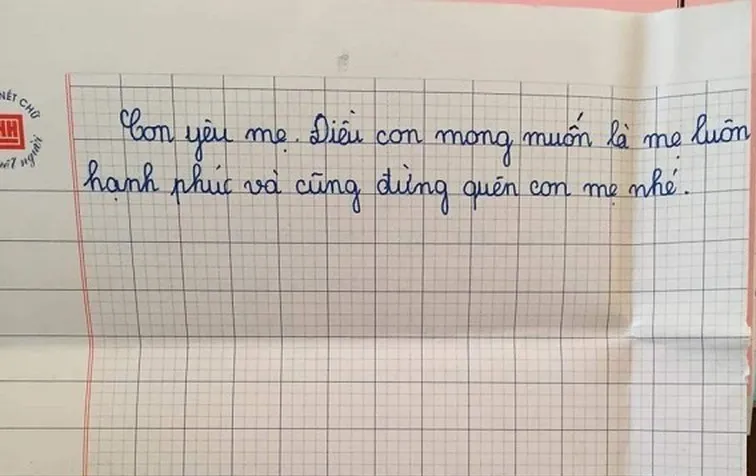 NÉT CHỮ
NH
NẾT NGƯỜI
Con yêu mẹ. Điều con mong muốn là mẹ luôn
hạnh phúc và cũng đừng quên con mẹ nhé.